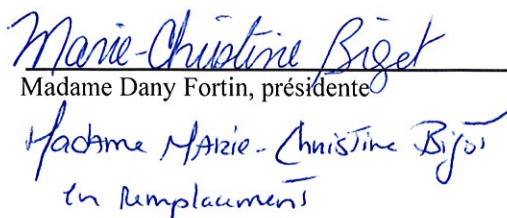 Marie-Christine Biget
Madame Dany Fortin, présidente
Madame Marie-Christine Bigot
en remplacement